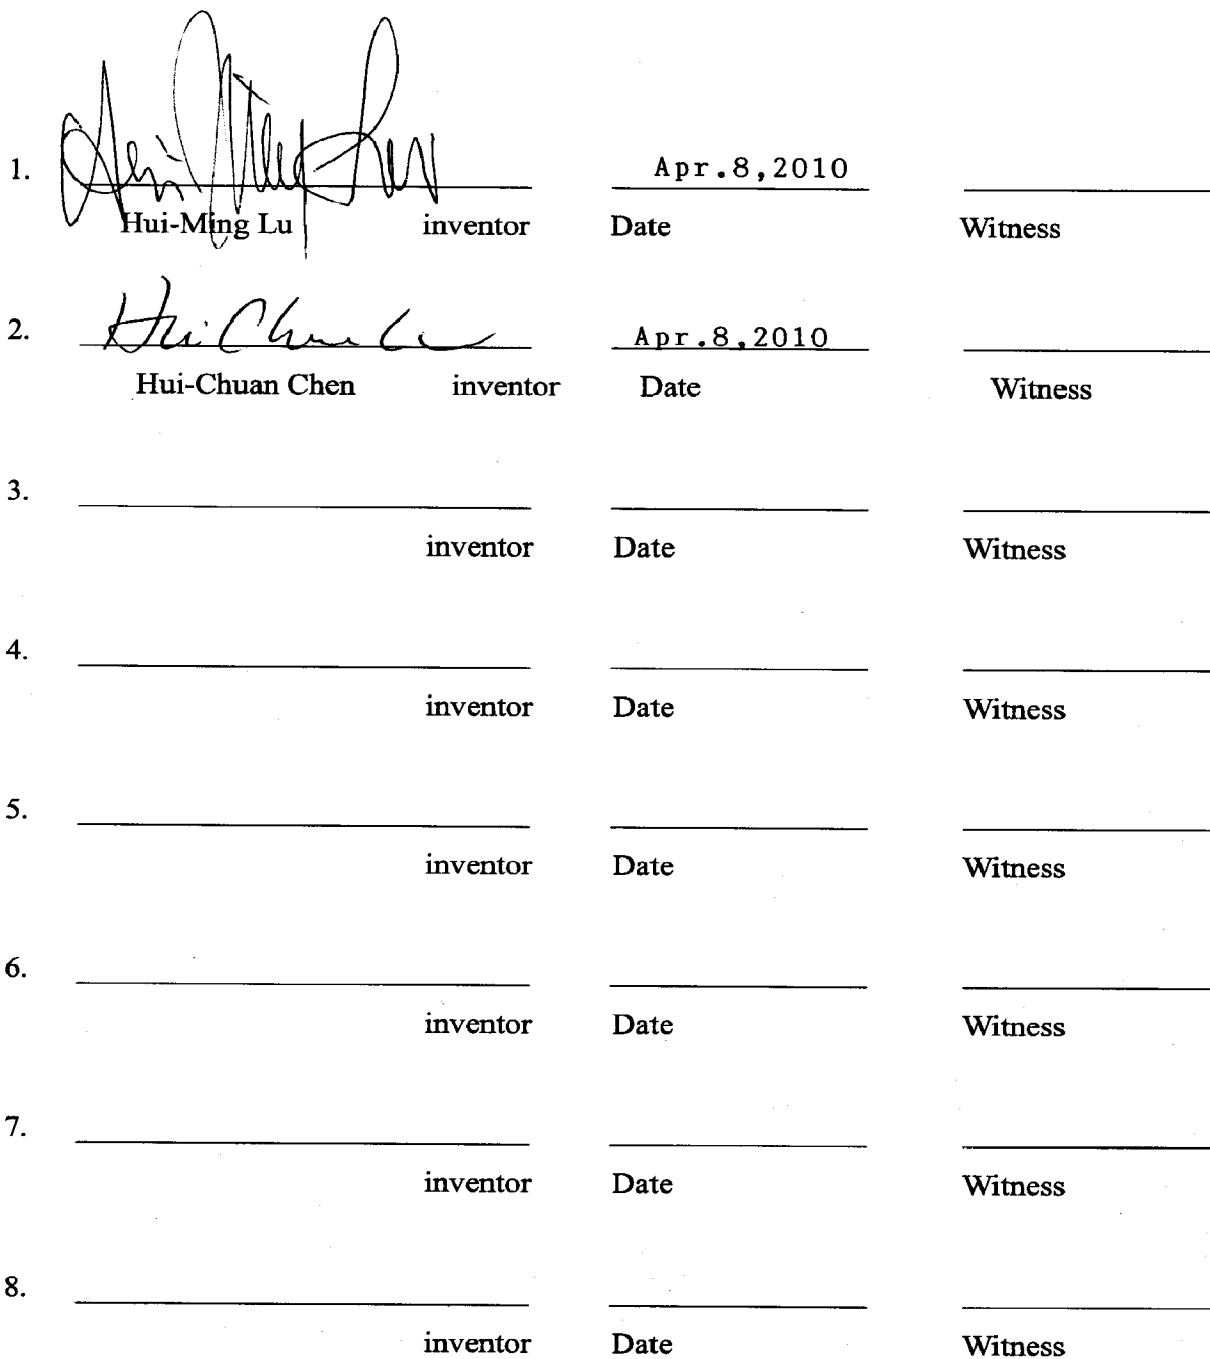 1. Hui Ming Lu Apr.8,2010
Hui-Ming Lu inventor Date Witness
2. Hui Chuan Apr.8,2010
Hui-Chuan Chen inventor Date Witness
3.
inventor Date Witness
4.
inventor Date Witness
5.
inventor Date Witness
6.
inventor Date Witness
7.
inventor Date Witness
8.
inventor Date Witness